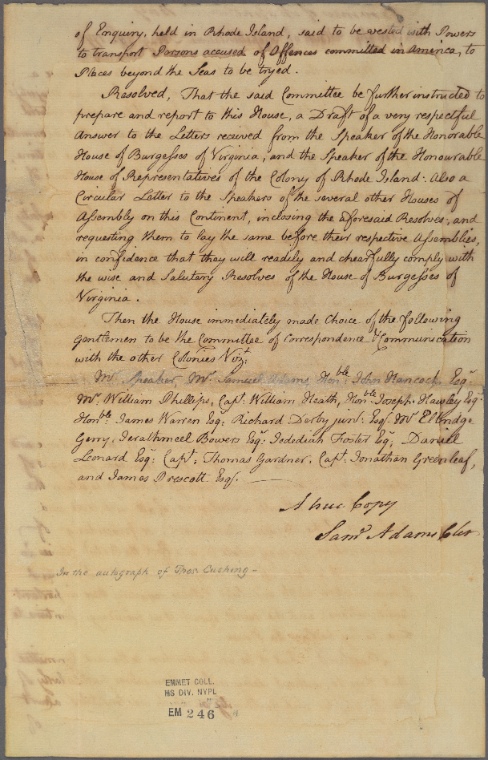 of Enquiry, held in Rhode Island, said to be vested with Powers
to transport Persons accused of Offences committed in America, to
Places beyond the Seas to be tryed.
Resolved, That the said Committee be further instructed to
prepare and report to this House, a Draft of a very respectful
Answer to the Letters received from the Speaker of the Honorable
House of Burgesses of Virginia, and the Speaker of the Honourable
House of Representatives of the Colony of Rhode Island. Also a
Circular Letter to the Speakers of the several other Houses of
Assembly on this Continent, inclosing the aforesaid Resolves, and
requesting them to lay the same before their respective Assemblies,
in confidence that they will readily and chearfully comply with
the wise and Salutary Resolves of the House of Burgesses of
Virginia.
Then the House immediately made Choice of the following
Gentlemen to be the Committee of Correspondence & Communication
with the other Colonies Vizt
Mr Speaker, Mr Samuel Adams, Honble John Hancock Esqr
Mr William Phillips, Capt William Heath, Honble Joseph Hawley Esqr
Honble James Warren Esqr Richard Derby junr Esqr Mr Elbridge
Gerry, Jerathmeel Bowers Esqr Jedediah Foster Esqr Daniell
Leonard Esqr Capt Thomas Gardner, Capt Jonathan Greenleaf,
and James Prescott Esqr
A true Copy
Saml Adams Cler
In the autograph of Thos. Cushing –
EMMET COLL.
MS DIV. NYPL
EM 246